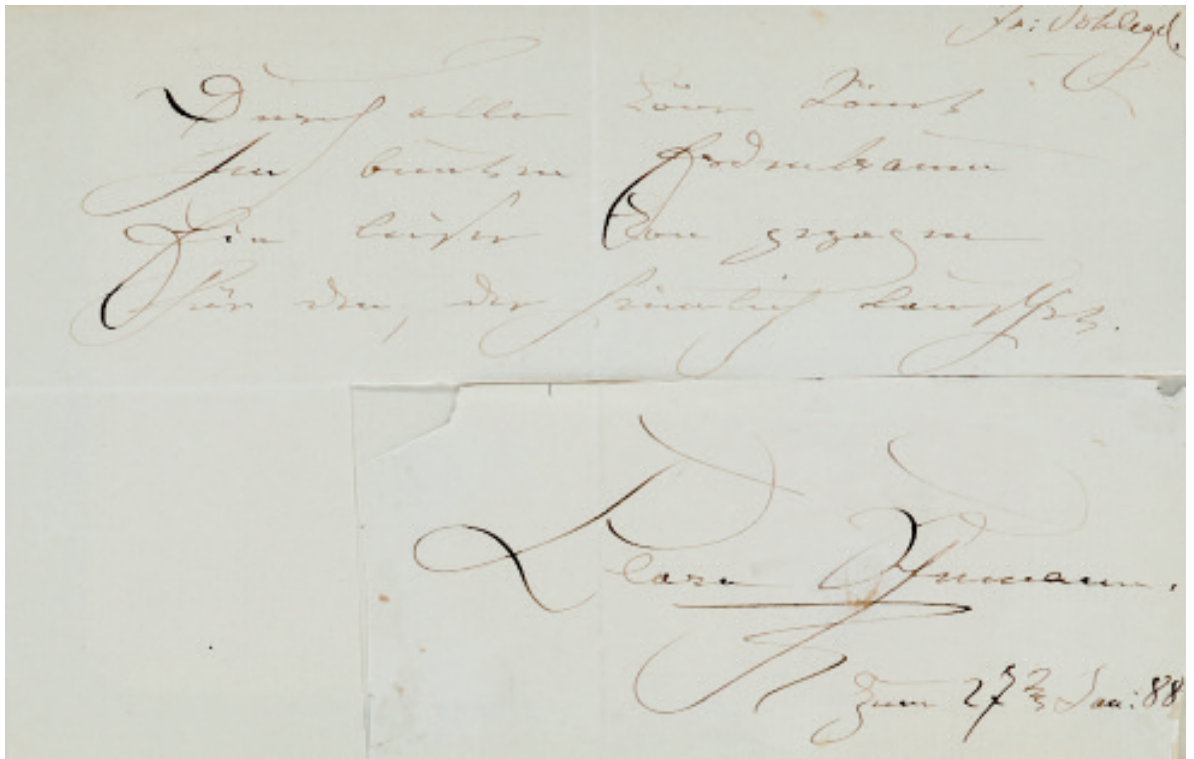 Fr: Schlegel.
Durch alle Töne tönet
Im bunten Erdentraum
Ein leiser Ton gezogen
Für den, der heimlich lauschet.
Clara Schumann.
Zum 27 Jan: 88